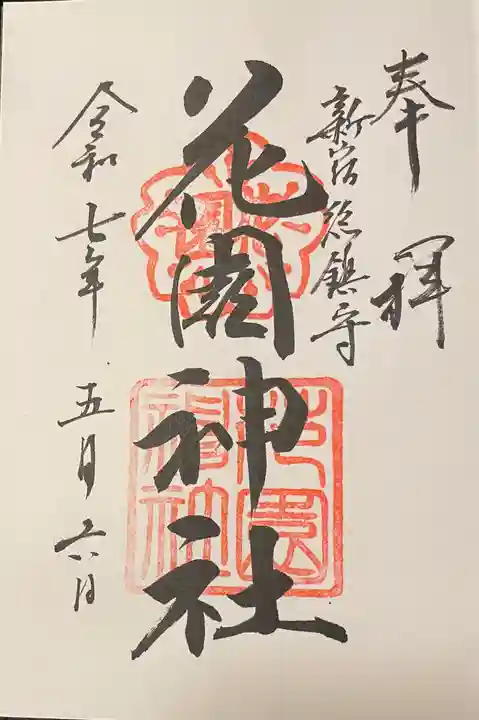 奉拝
新宿総鎮守
花園神社
令和七年
五月六日
花園神社